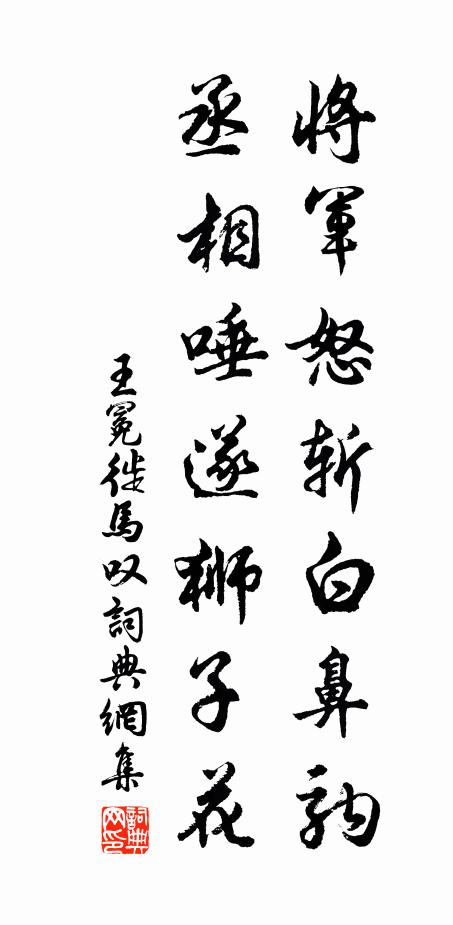 將軍怒斬白鼻騧
丞相唾遂獅子花
王冕徙馬叹詞典網集
詞典网印